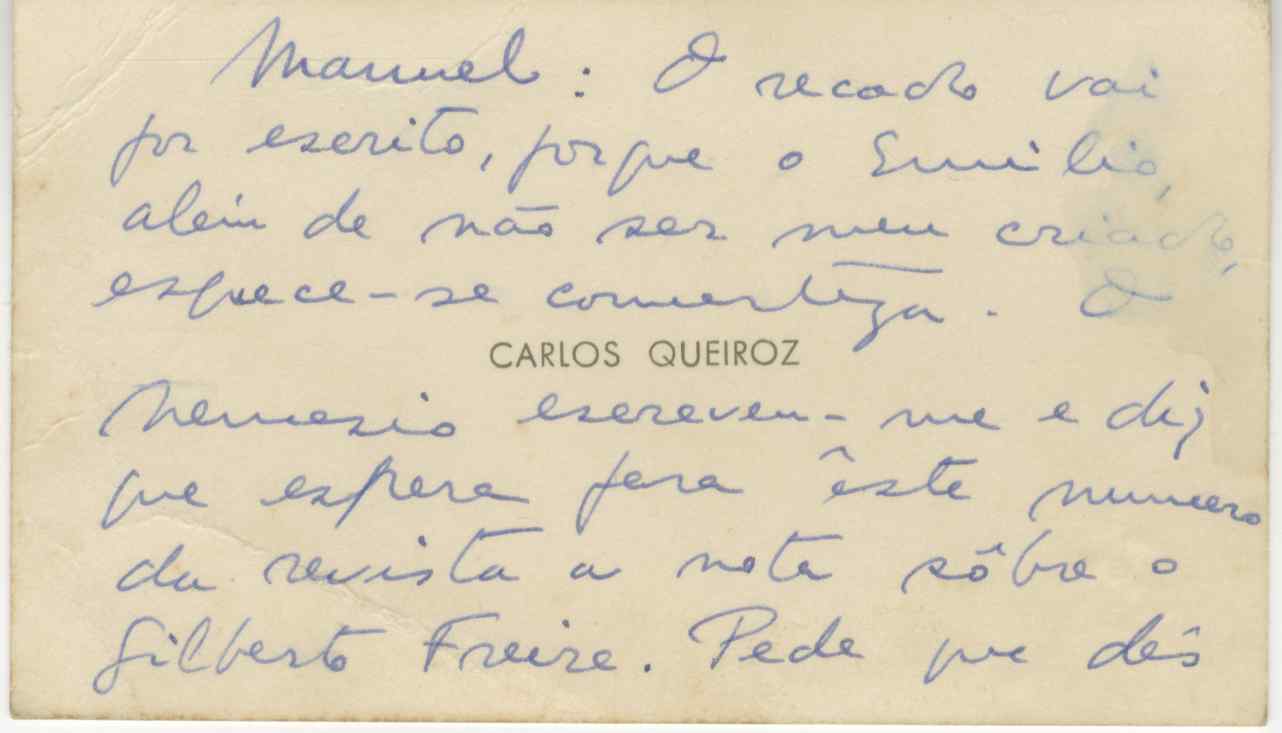 Manuel: O recado vai
por escrito, porque o Emilio,
além de não ser meu criado,
espece-se comcerteza. O
CARLOS QUEIROZ
Nemesio escreveu-me e diz
que espera para êste numero
da revista a nota sôbre o
Gilberto Freire. Pede que dês